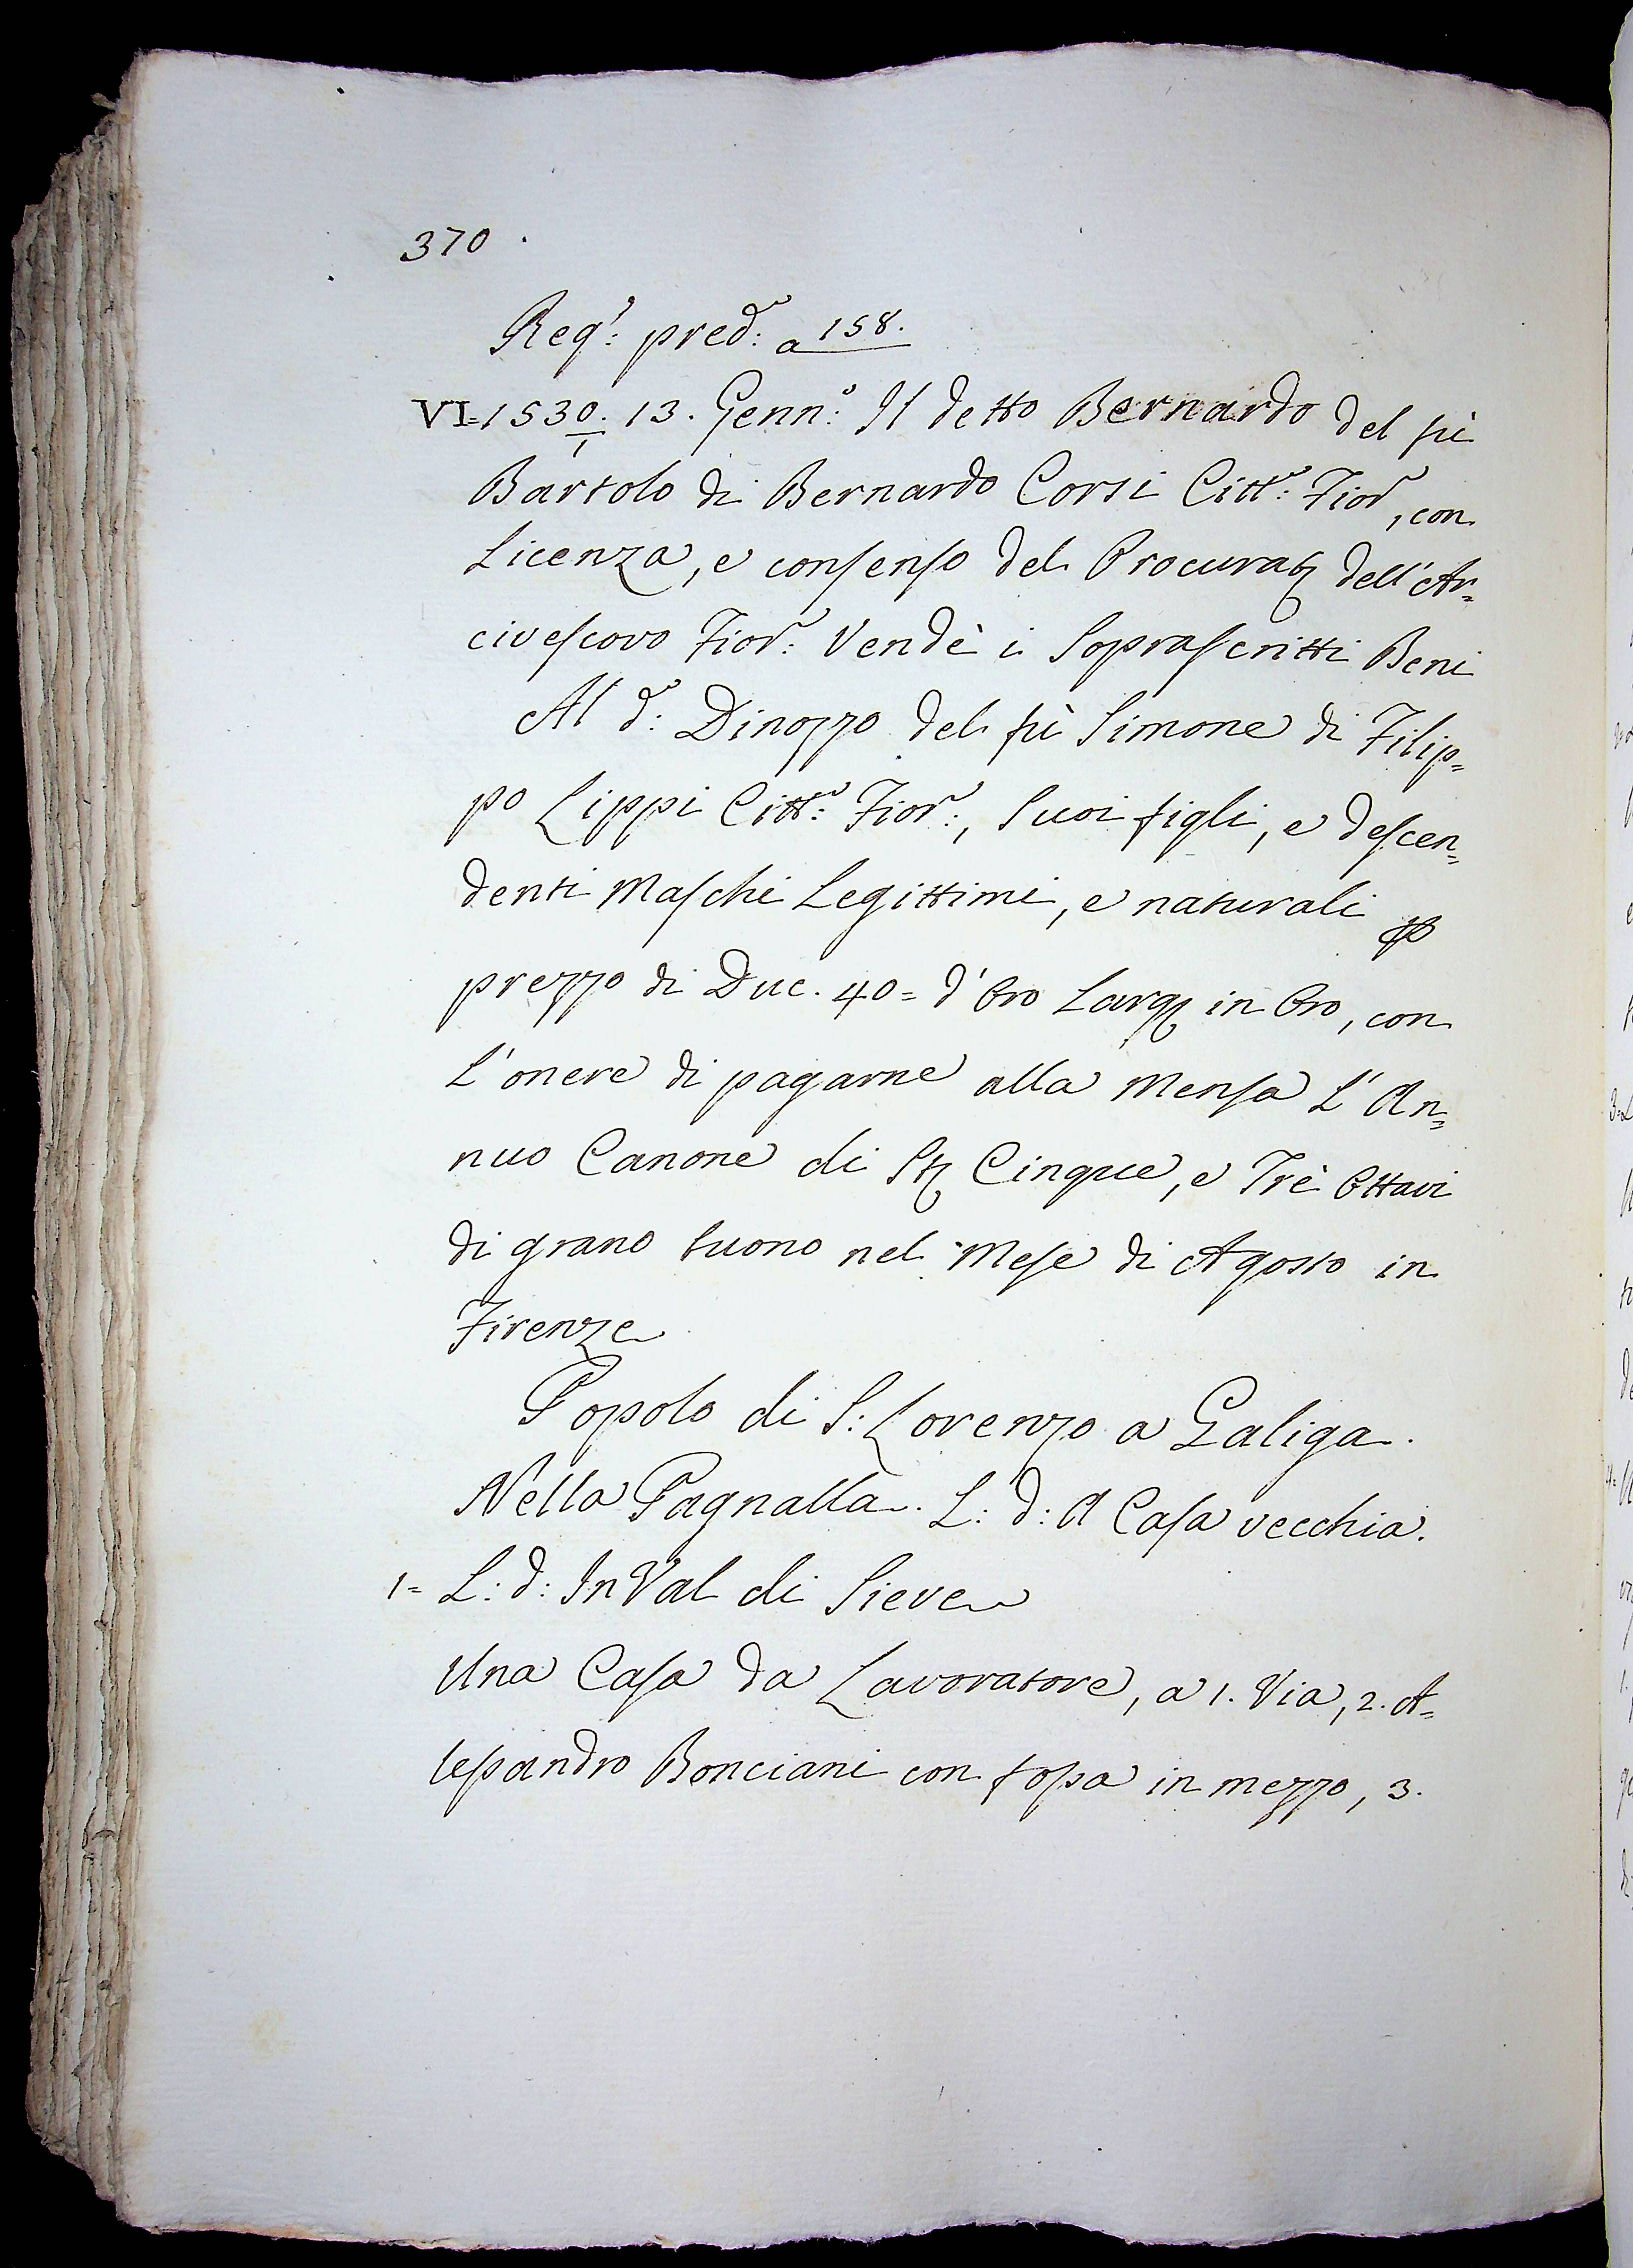 370.
Reg.: pred.: a 158.
VI=1530/1. 13. Genn.º Il detto Bernardo del fù
Bartolo di Bernardo Corsi Citt.: Fior, con
Licenza, e consenso del Procurat dell'Ar=
civescovo Fior: Vendè i Soprascritti Beni
Al d: Dinozzo del fù Simone di Filip=
po Lippi Citt: Fior:, Suoi figli, e descen=
denti Maschi Legittimi, e naturali p
prezzo di Duc. 40= d'Oro Larg in Oro, con
L'onere di pagarne alla Mensa L'An=
nuo Canone di St Cinque, e Trè Ottavi
di grano buono nel Mese di Agosto in
Firenze
Popolo di S: Lorenzo a Galiga.
Nella Pagnalla. L: d: A Casa vecchia.
1= L: d: In Val di Sieve
Una Casa da Lavoratore, a 1. Via, 2. A=
lessandro Bonciani con fossa in mezzo, 3.